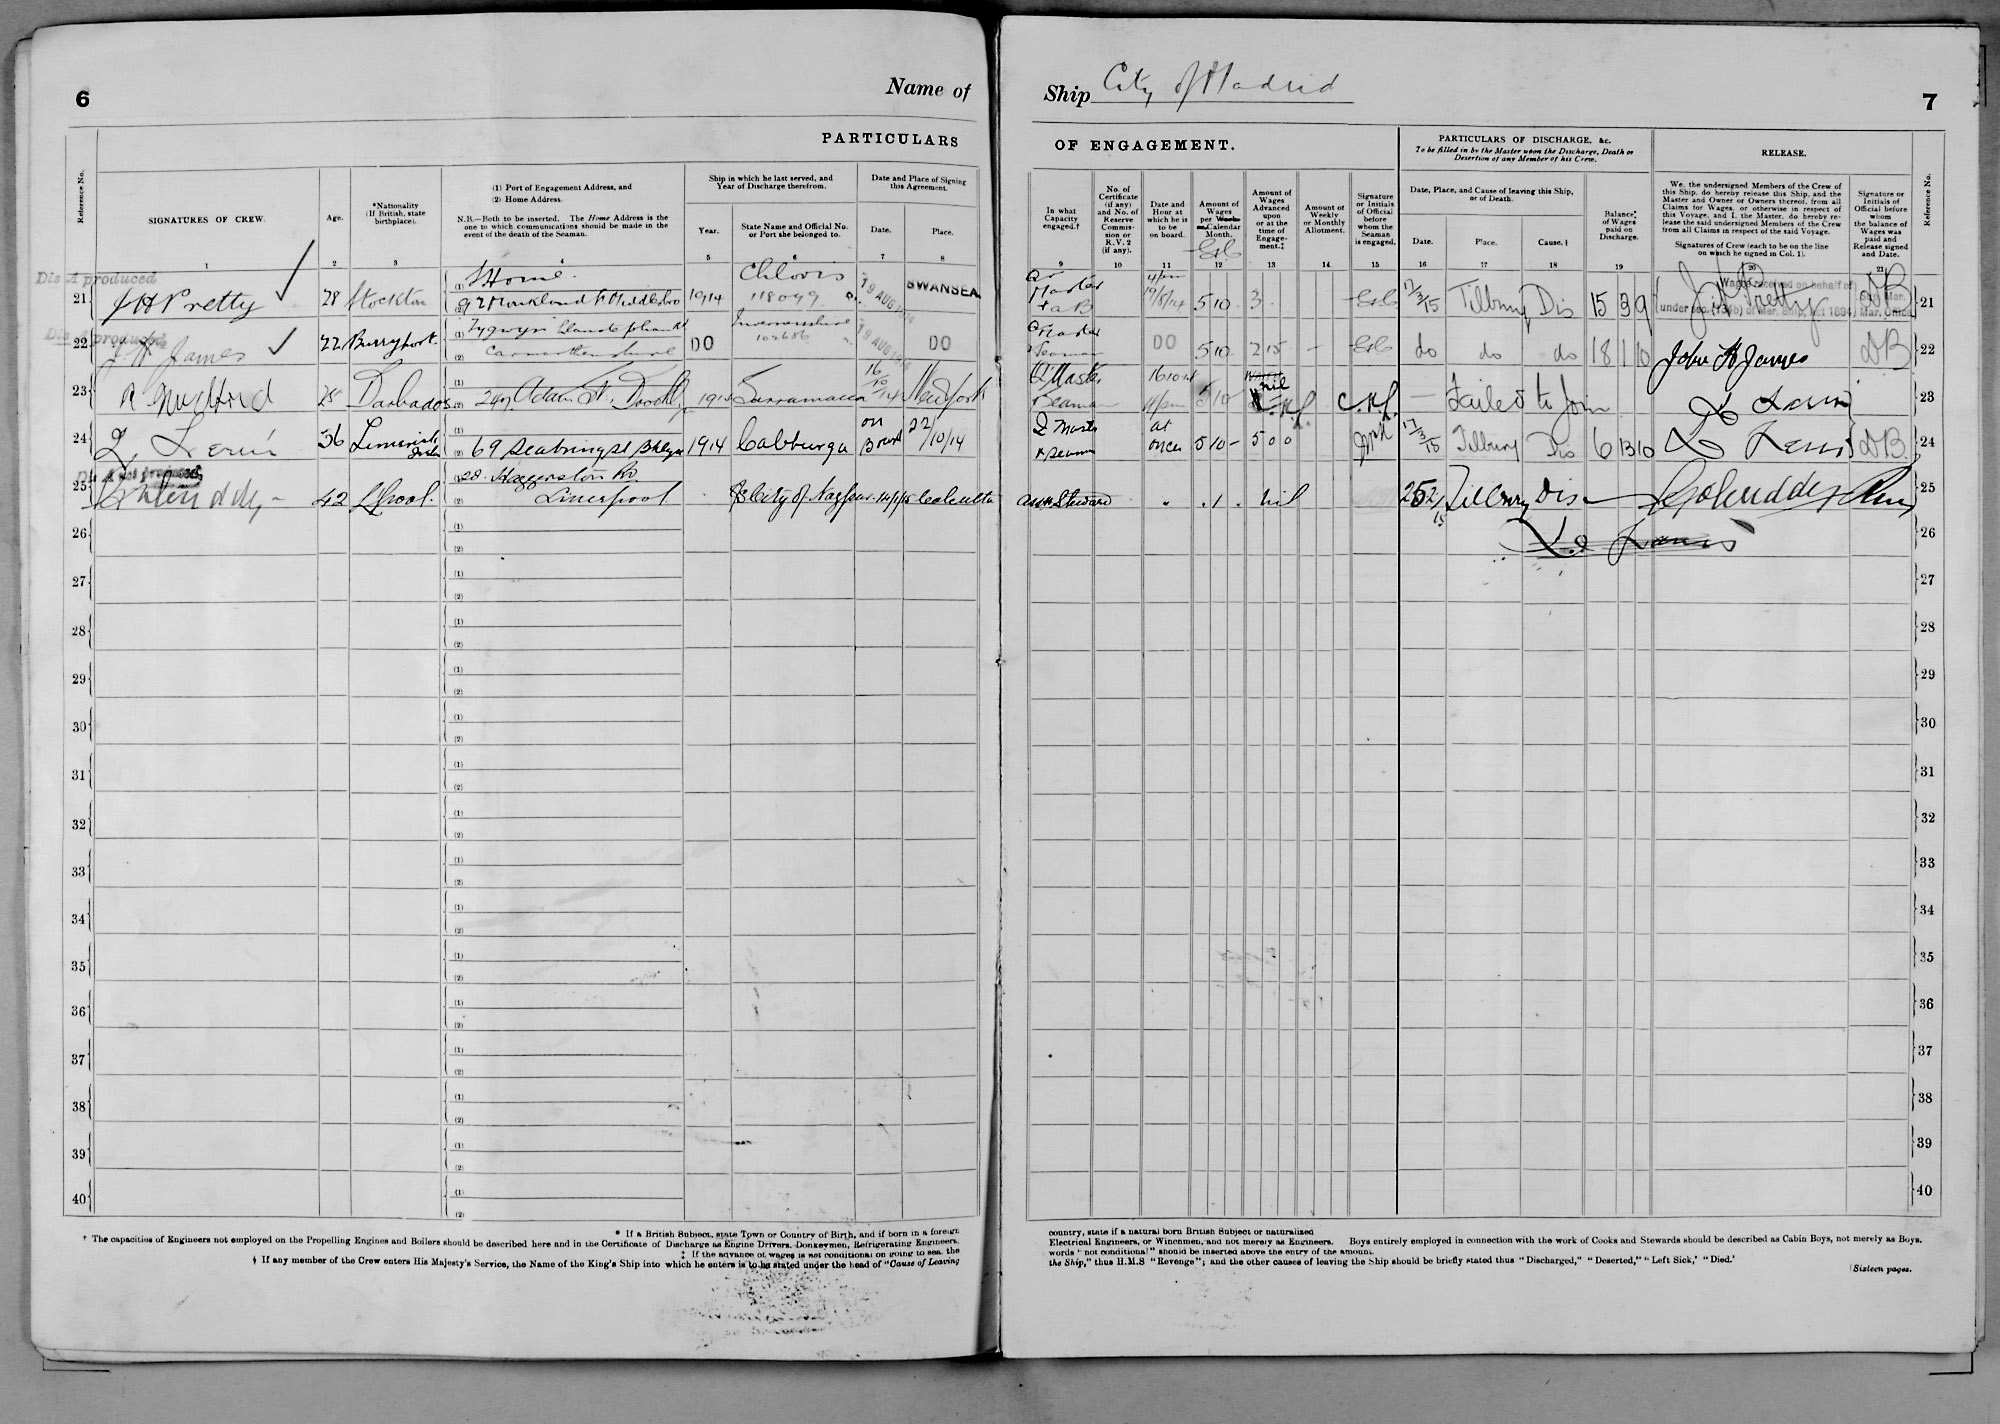 6
Name of
PARTICULARS
Reference No.
SIGNATURES OF CREW.
Age.
*Nationality
(If British, state
birthplace).
(1) Port of Engagement Address, and
(2) Home Address.
N.B.—Both to be inserted. The Home Address is the
one to which communications should be made in the
event of the death of the Seaman.
Ship in which he last served, and
Year of Discharge therefrom.
Year.
State Name and Official No.
or Port she belonged to.
Date and Place of Signing
this Agreement.
Date.
Place.
1 2 3 4 5 6 7 8
Dis A produced
21 J H Pretty 28 Stockton
(1) Home.
(2) 1914 Clovis 118099 19 AUG 1914 SWANSEA
Dis A produced
22 J H James 22 Burryport
(1)
(2) Carmarthenshire DO Invernesshire 19 AUG 1914 DO
23 25 Barbados
(1)
(2) Adam St. 1914 16/10/14 New York
24 36 Limerick
(1)
(2) 69 Seabring St Bklyn 1914 Calburga on Board 22/10/14
25 42 L'pool.
(1) 28 Haggerston Rd.
(2) Liverpool SS City of Nagpur Calcutta
26 (1)
(2)
27 (1)
(2)
28 (1)
(2)
29 (1)
(2)
30 (1)
(2)
31 (1)
(2)
32 (1)
(2)
33 (1)
(2)
34 (1)
(2)
35 (1)
(2)
36 (1)
(2)
37 (1)
(2)
38 (1)
(2)
39 (1)
(2)
40 (1)
(2)
* If a British Subject, state Town or Country of Birth, and if born in a foreign
† The capacities of Engineers not employed on the Propelling Engines and Boilers should be described here and in the Certificate of Discharge as Engine Drivers, Donkeymen, Refrigerating Engineers,
‡ If the advance of wages is not conditional on going to sea, the
† If any member of the Crew enters His Majesty's Service, the Name of the King's Ship into which he enters is to be stated under the head of "Cause of Leaving
Ship City of Madrid
7
OF ENGAGEMENT.
In what
Capacity
engaged.†
No. of
Certificate
(if any)
and No. of
Reserve
Commis-
sion or
R.V. 2
(if any).
Date and
Hour at
which he is
to be
on board.
Amount of
Wages
per Week
or Calendar
Month.
Amount of
Wages
Advanced
upon
or at the
time of
Engage-
ment.‡
Amount of
Weekly
or Monthly
Allotment.
Signature
or Initials
of Official
before
whom the
Seaman
is engaged.
PARTICULARS OF DISCHARGE, &c.
To be filled in by the Master upon the Discharge, Death or
Desertion of any Member of his Crew.
Date, Place, and Cause of leaving this Ship,
or of Death.
Date.
Place.
Cause.†
Balance
of Wages
paid on
Discharge.
RELEASE.
We, the undersigned Members of the Crew of
this Ship, do hereby release this Ship, and the
Master and Owner or Owners thereof, from all
Claims for Wages, or otherwise in respect of
this Voyage, and I, the Master, do hereby re-
lease the said undersigned Members of the Crew
from all Claims in respect of the said Voyage.
Signatures of Crew (each to be on the line
on which he signed in Col. 1).
Signature or
Initials of
Official before
whom
the balance of
Wages was
paid and
Release signed
and Date.
Reference No.
9 10 11 12 13 14 15 16 17 18 19 20 21
Qr Master & AB 5 10 3 17/3/15 Tilbury Dis 15 3 9 J H Pretty DB 21
Wages received on behalf of
DO 5 10 2 15 do do do 18 1 10 John H James DB 22
Qr Master Seaman nil Failed to Join 23
Q Master & Seaman at once 5 10 - 5 0 0 17/3/15 Tilbury Dis 6 13 10 DB 24
Steward . 1 . nil Tilbury Dis 25
26
27
28
29
30
31
32
33
34
35
36
37
38
39
40
country, state if a natural born British Subject or naturalised
Electrical Engineers, or Winchmen, and not merely as Engineers. Boys entirely employed in connection with the work of Cooks and Stewards should be described as Cabin Boys, not merely as Boys.
words "not conditional" should be inserted above the entry of the amount.
the Ship," thus H.M.S "Revenge"; and the other causes of leaving the Ship should be briefly stated thus "Discharged," "Deserted," "Left Sick,' "Died.'
(Sixteen pages.